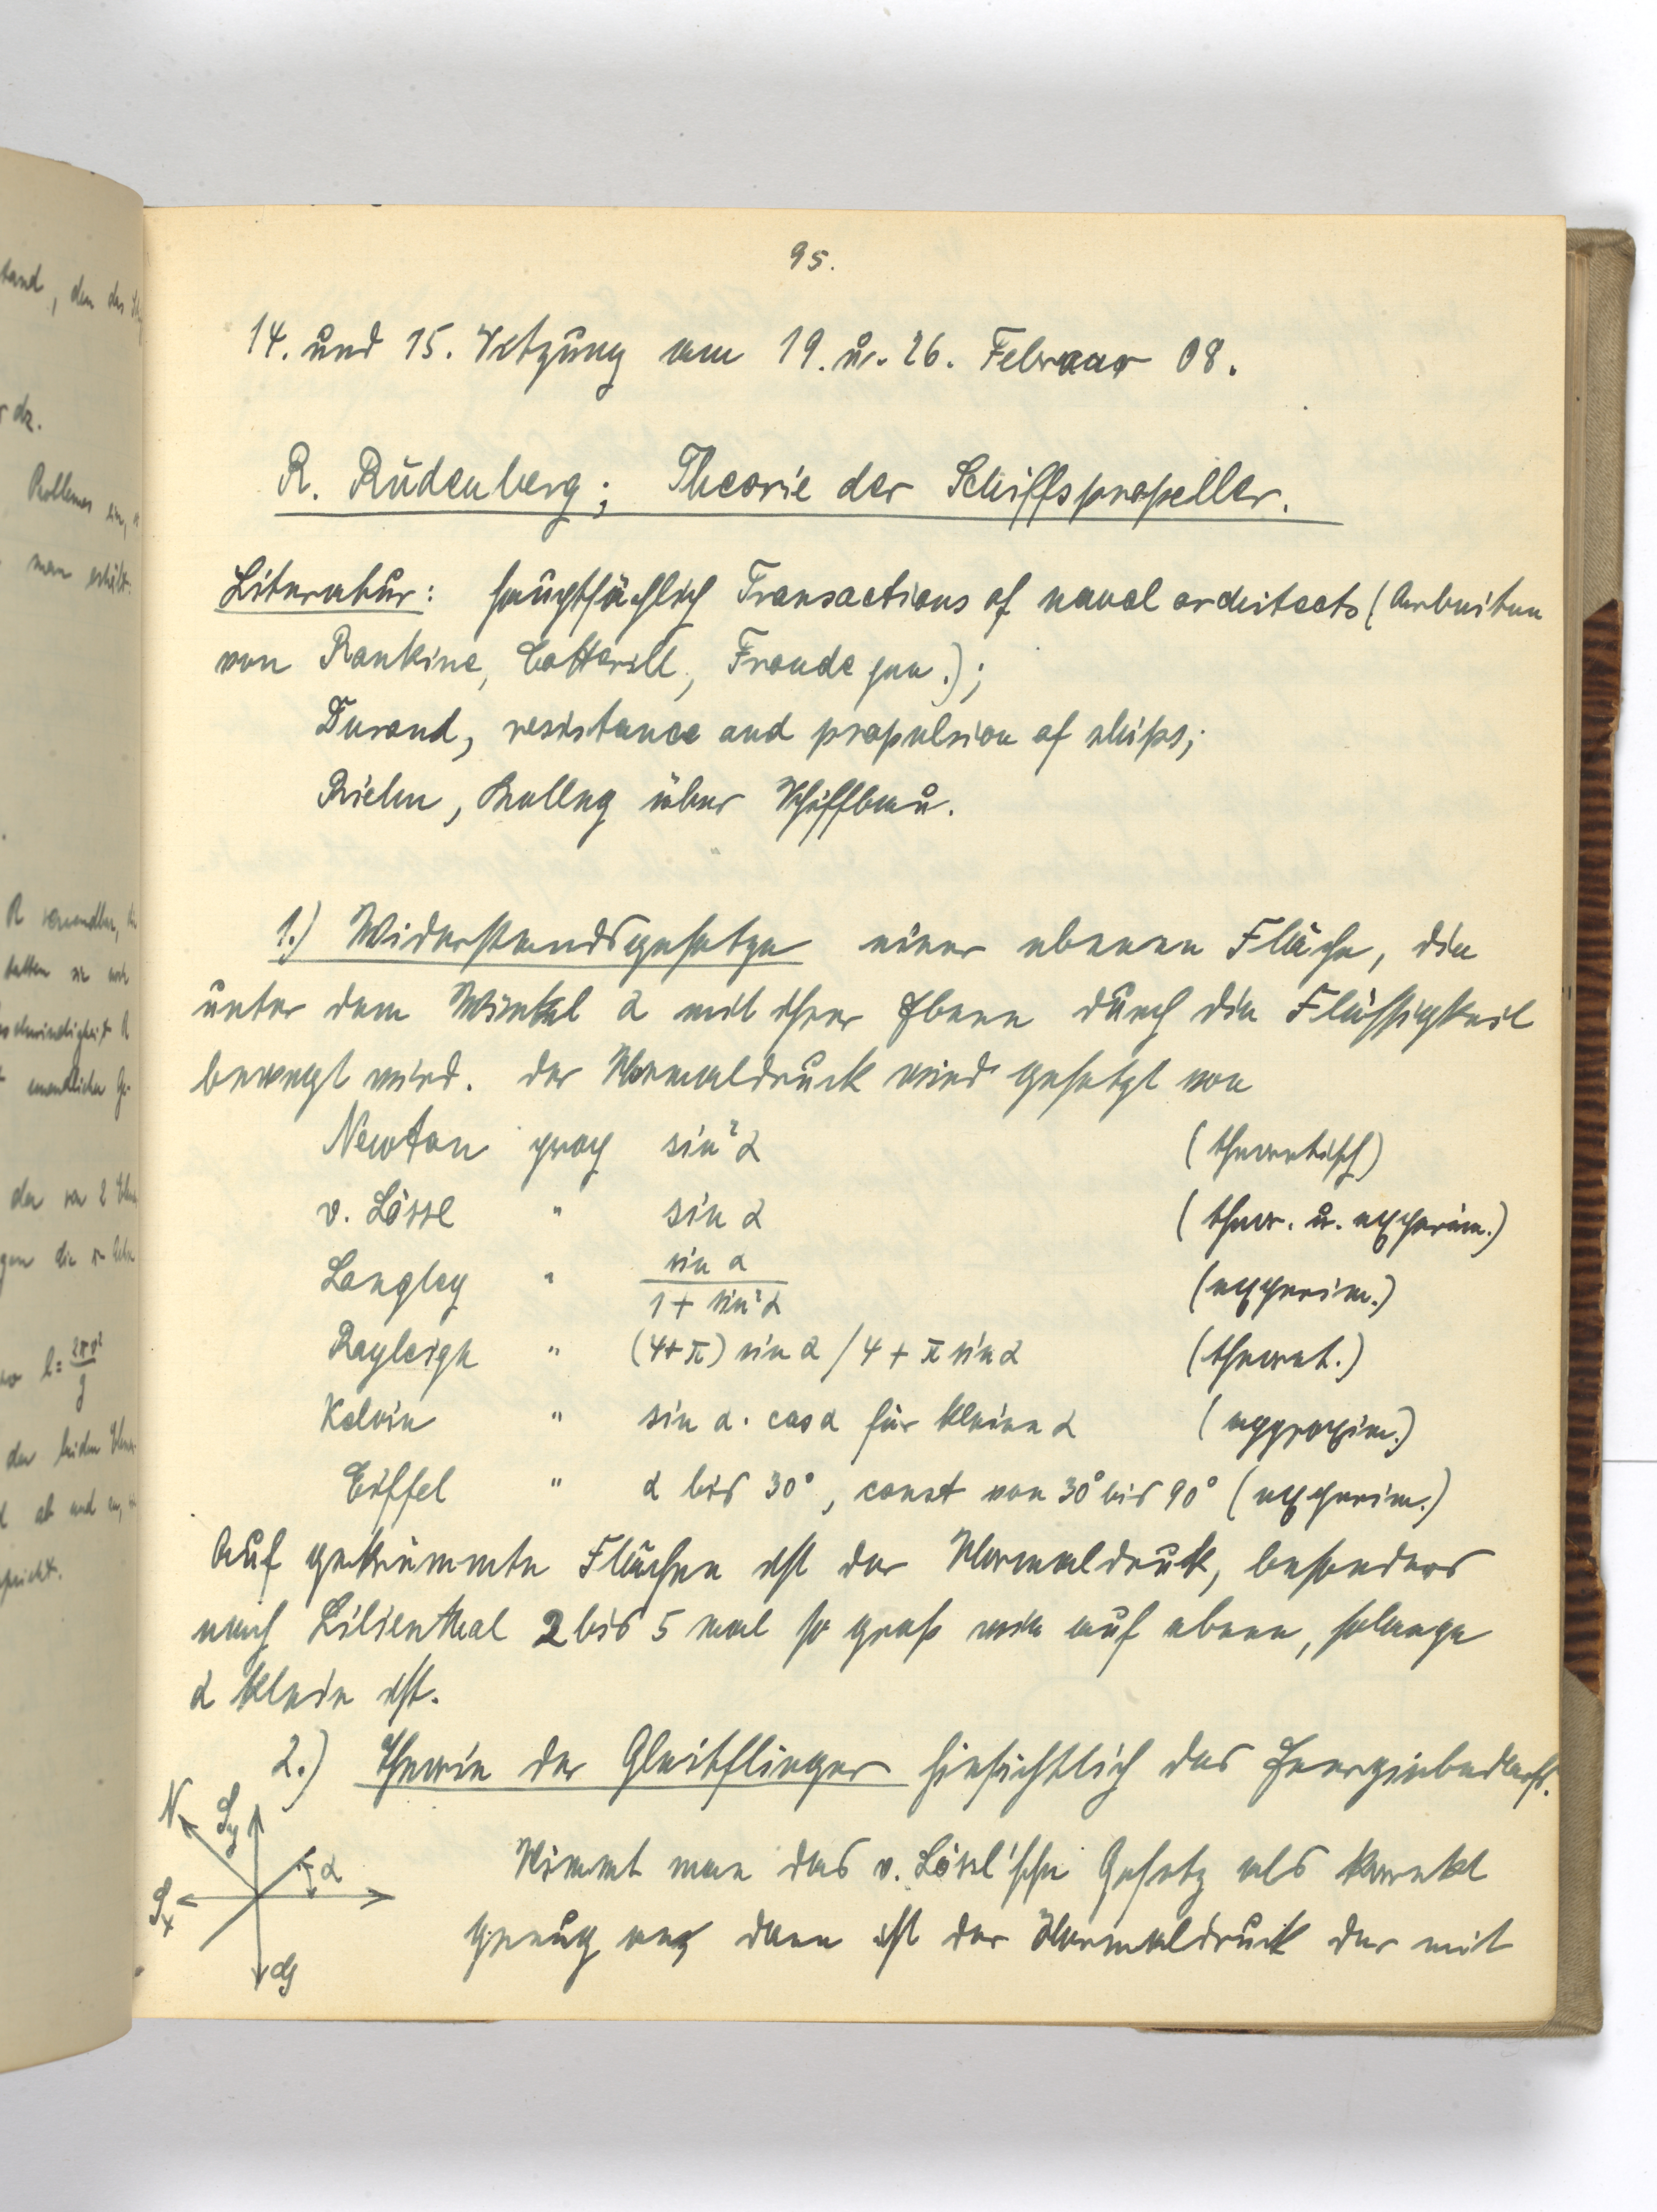 95.
14. und 15. Sitzung am 19. u. 26. Februar 08.
R. Rüdenberg; Theorie der Schiffspropeller.
Literatur: hauptsächlich Transactions of naval architects (Arbeiten
von Rankine, Cotterill, Froude jun.);
Durand, resistance and propulsion of ships;
Riehn, Kolleg über Schiffbau.
1.) Widerstandsgesetze einer ebenen Fläche, die
unter dem Winkel α mit ihrer Ebene durch die Flüssigkeit
bewegt wird. Der Normaldruck wird gesetzt von
Newton prop sin²α (theoretisch)
v. Lössl " sin α (theor. u. experim.)
Langley " sin α / 1 + sin²α (experim.)
Rayleigh " (4+π) sin α / 4 + π sin α (theoret.)
Kelvin " sin α · cos α für kleine α (approxim.)
Eiffel " α bis 30°, const von 30° bis 90° (experim.)
Auf gekrümmte Flächen ist der Normaldruck, besonders
nach Lilienthal 2 bis 5 mal so groß wie auf ebene, solange
α klein ist.
2.) Theorie der Gleitflieger hinsichtlich des Energiebedarfs.
N
α
G
Nimmt man das v. Lössl'sche Gesetz als korrekt
genug an, dann ist der Normaldruck der mit
tand, den des
dz.
Problemes ein,
man erhält.
R verwendbar,
hatten sie auch
l = 2πv²/g
der beiden
ab und